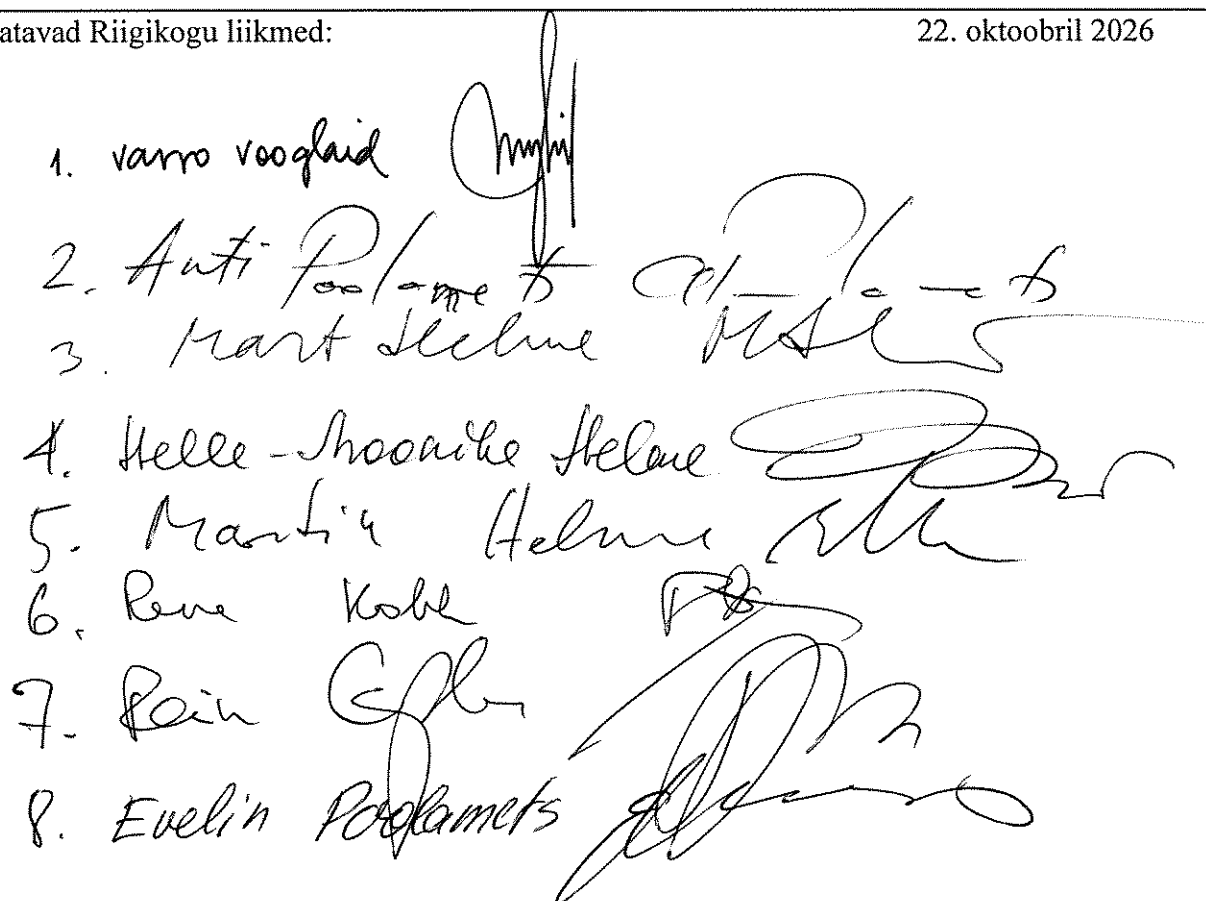 atavad Riigikogu liikmed: 22. oktoobril 2026
1. varro vooglaid
2. Anti Poolamets
3. Mart Helme
4. Helle-Moonike Helme
5. Martin Helme
6. Rene Kokk
7. Rain Epler
8. Evelin Poolamets